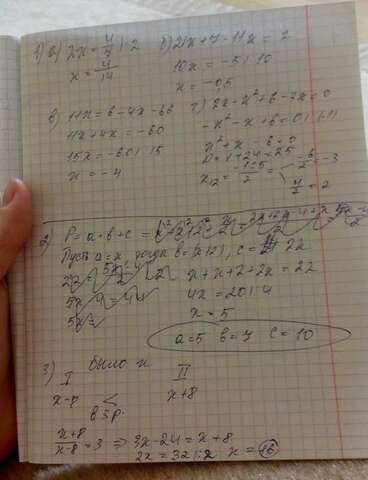 1) а) 2x = 4/7 | : 2   б) 21x + 7 - 11x = 2
x = 4/14   10x = -5 | : 10
x = -0,5
в) 11x = 6 - 4x - 66   г) 2x - x² + 6 - 3x = 0
11x + 4x = -60   -x² - x + 6 = 0 | (-1)
15x = -60 | : 15   x² + x - 6 = 0
x = -4   D = 1 + 24 = 25
x12 = (-1±5)/2 = -6/2 = -3
4/2 = 2
2) P = a + b + c =
Пусть a = x, тогда b = (x+2), c = 2x
x + x + 2 + 2x = 22
4x = 20 | : 4
x = 5
a = 5 b = 7 c = 10
3) было x
I   II
x-8 < x+8
в 3 р.
(x+8)/(x-8) = 3 ⇒ 3x - 24 = x + 8
2x = 32 | : 2   x = 16